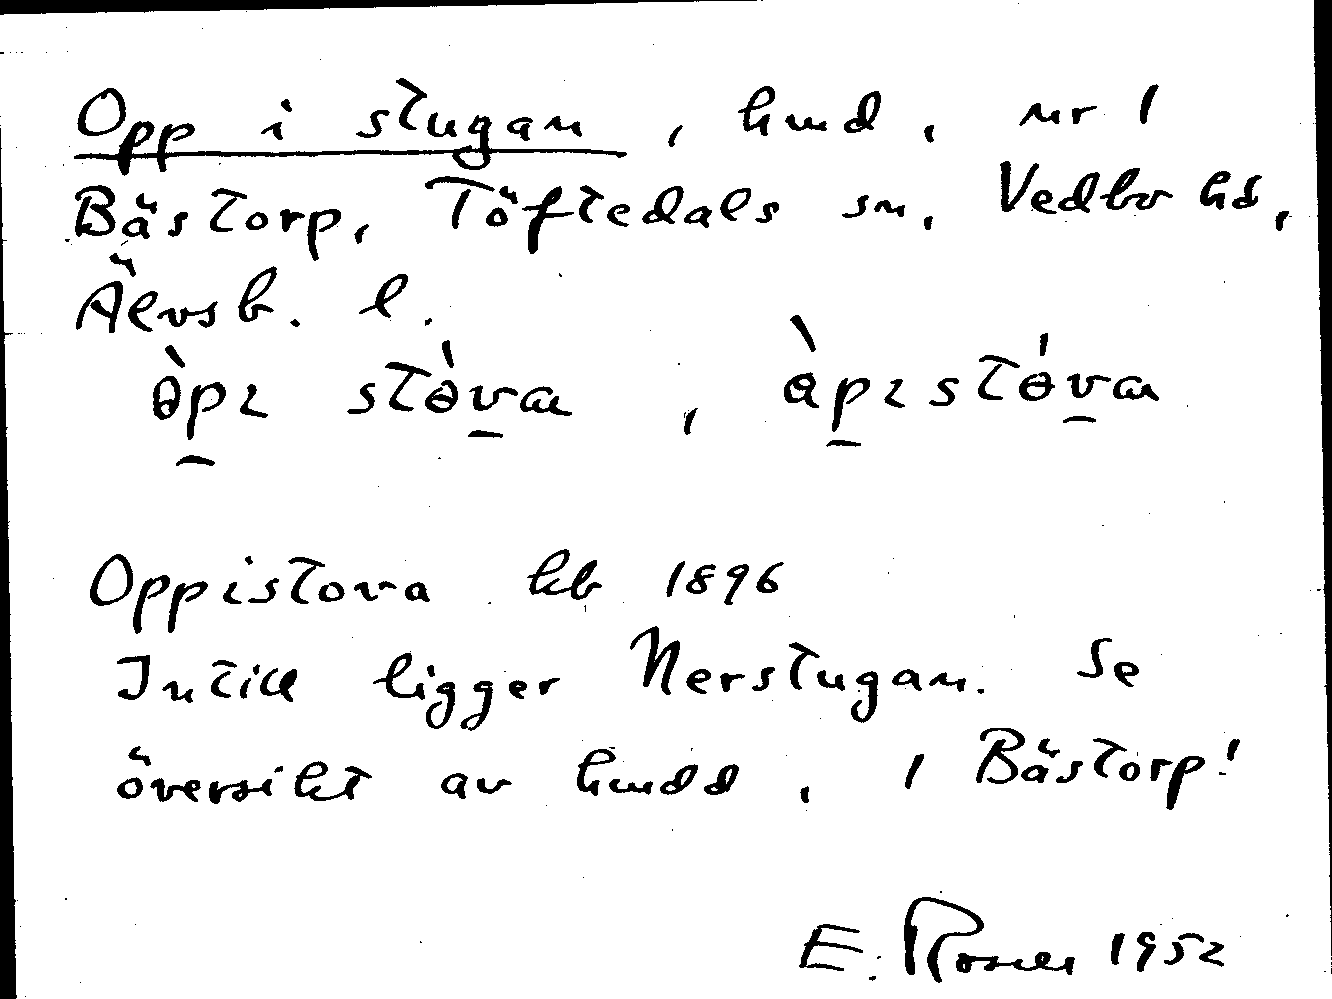 Opp i stugan, hmd, nr 1
Bästorp, Töftedals sn, Vedbo hd,
Älvsb. l.
ɵ̀pɪ stɵ̀va, àpɪstɵ́va
Oppistova kb 1896
Intill ligger Nerstugan. Se
översikt av hmdd, 1 Bästorp!
E. 1952